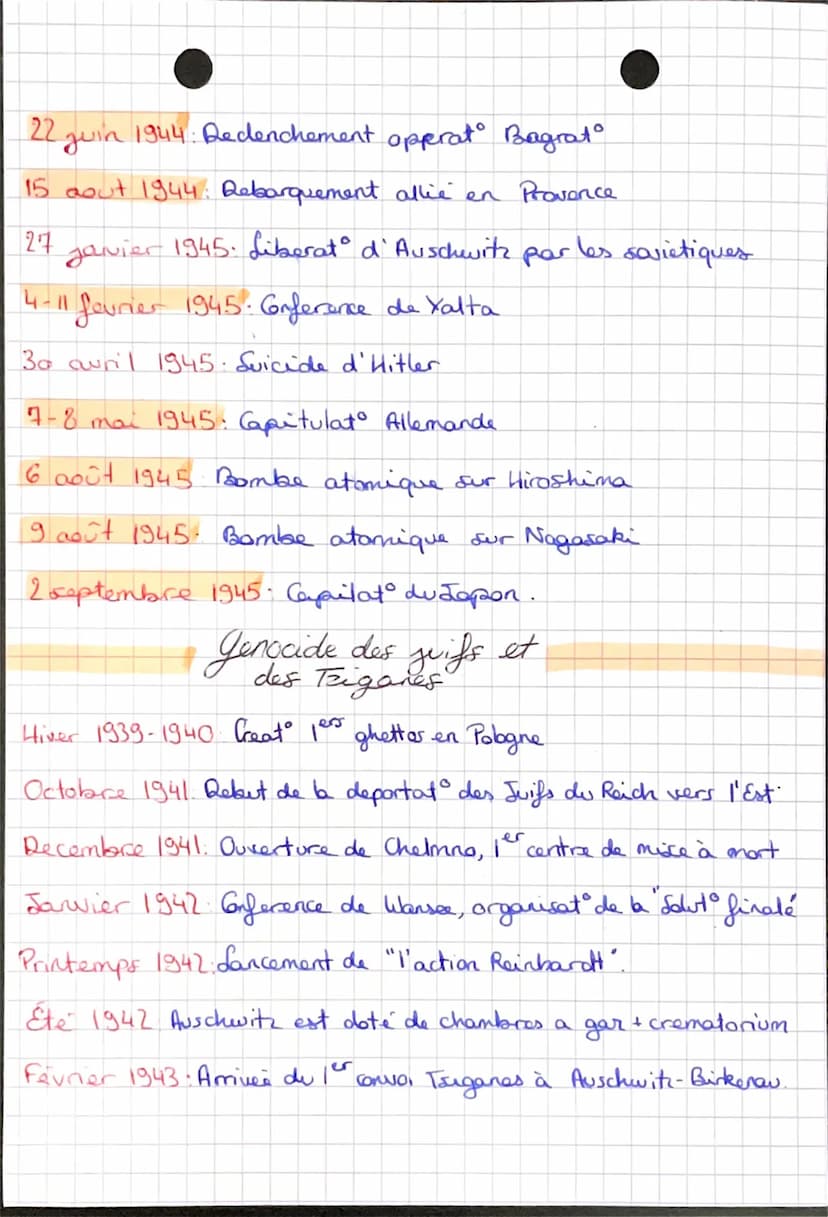 22 juin 1944: Declenchement opperat° Bagrat°
15 aout 1944: Debarquement allié en Provence
27 janvier 1945: Liberat° d'Auschwitz par les soviétiques
4-11 fevrier 1945: Conference de Yalta
30 avril 1945: Suicide d'Hitler
7-8 mai 1945: Capitulat° Allemande
6 août 1945 Bombe atomique sur Hiroshima
9 août 1945. Bombe atomique sur Nagasaki
2 septembre 1945: Capilat° du Japon.
Genocide des juifs et
des Tziganes
Hiver 1939-1940 Creat° 1ers ghettos en Pologne
Octobre 1941. Debut de la deportat° des Juifs du Reich vers l'Est.
Decembre 1941: Ouverture de Chelmno, 1er centre de mise à mort
Janvier 1942: Conference de Wansee, organisat° de la "Solut° finale"
Printemps 1942: Lancement de "l'action Reinhardt".
Été 1942 Auschwitz est doté de chambres a gaz + crematorium
Février 1943: Arrivée du 1er convoi Tsiganes à Auschwitz-Birkenau.